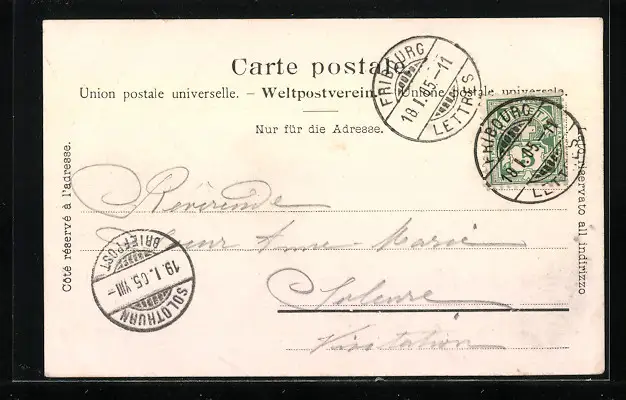 Carte postale
Union postale universelle. – Weltpostverein. Unione postale universale.
Nur für die Adresse.
Côté réservé à l'adresse.
Lato riservato all indirizzo
FRIBOURG
18.I.05.-11
LETTRES
FRIBOURG
18.I.05.-11
LETTRES
5
Révérende
Soeur Anne-Marie
Soleure
Visitation
BRIEFPOST
19.I.05.VIII-
SOLOTHURN